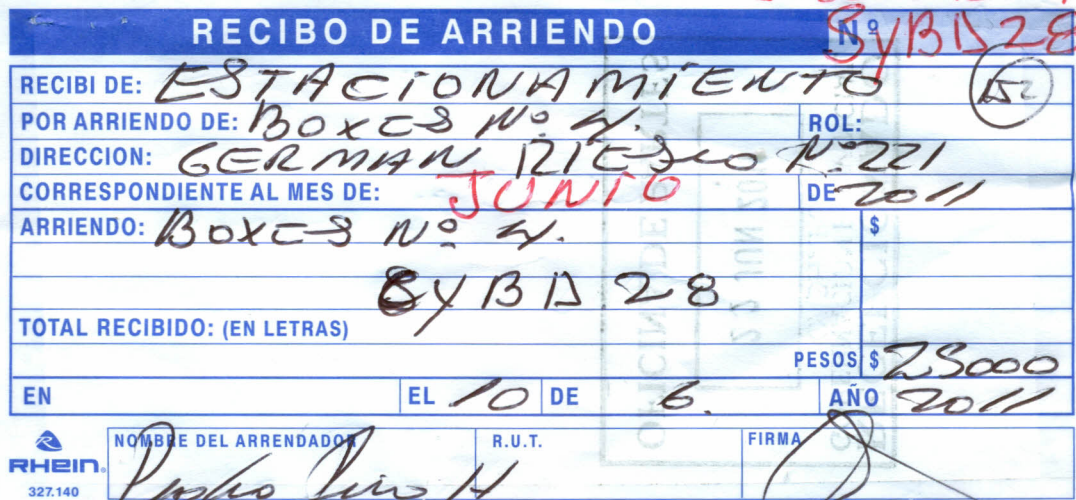 RECIBO DE ARRIENDO Nº SYBD28
RECIBI DE: ESTACIONAMIENTO
POR ARRIENDO DE: BOXES Nº 4. ROL:
DIRECCION: GERMAN RIESCO Nº 221
CORRESPONDIENTE AL MES DE: JUNIO DE 2011
ARRIENDO: BOXES Nº 4. $
SYBD28
TOTAL RECIBIDO: (EN LETRAS)
PESOS $ 25000
EN EL 10 DE 6. AÑO 2011
NOMBRE DEL ARRENDADOR R.U.T. FIRMA
RHEIN.
327.140